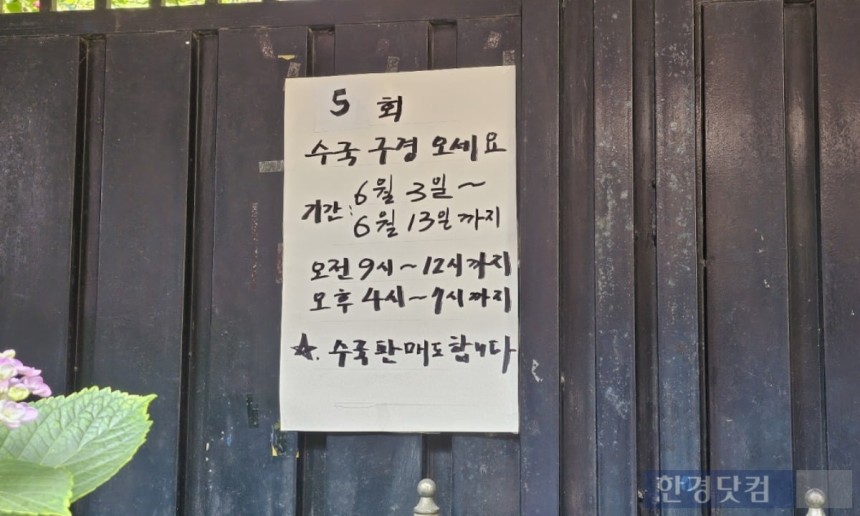 5 회
수국 구경 오세요
기간: 6월 3일 ~
6월 13일 까지
오전 9시 ~ 12시까지
오후 4시 ~ 7시까지
☆. 수국판매도합니다
한경닷컴